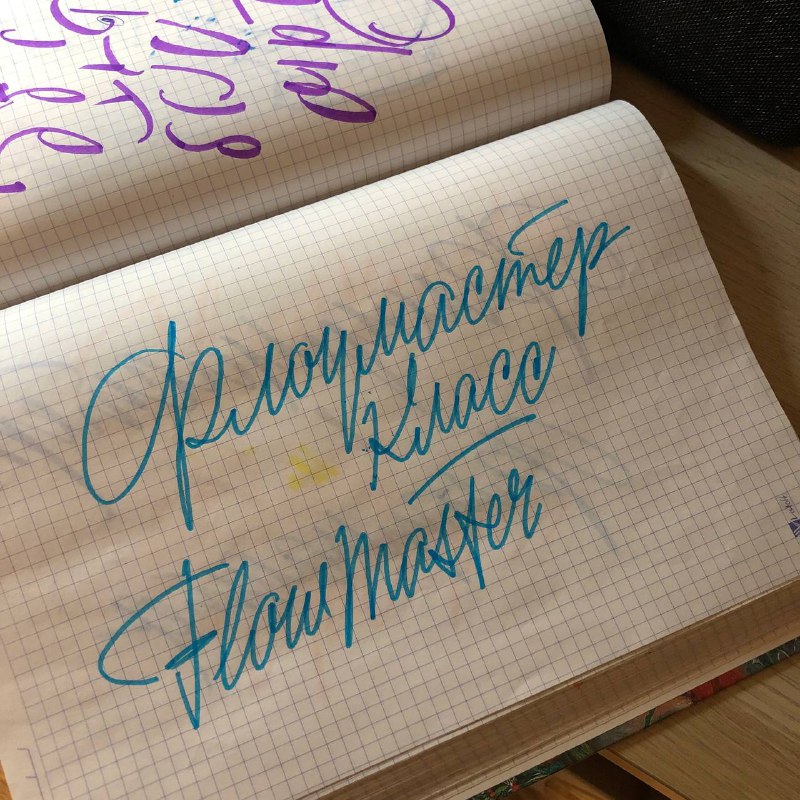 Флоумастер
Класс
FlowMaster